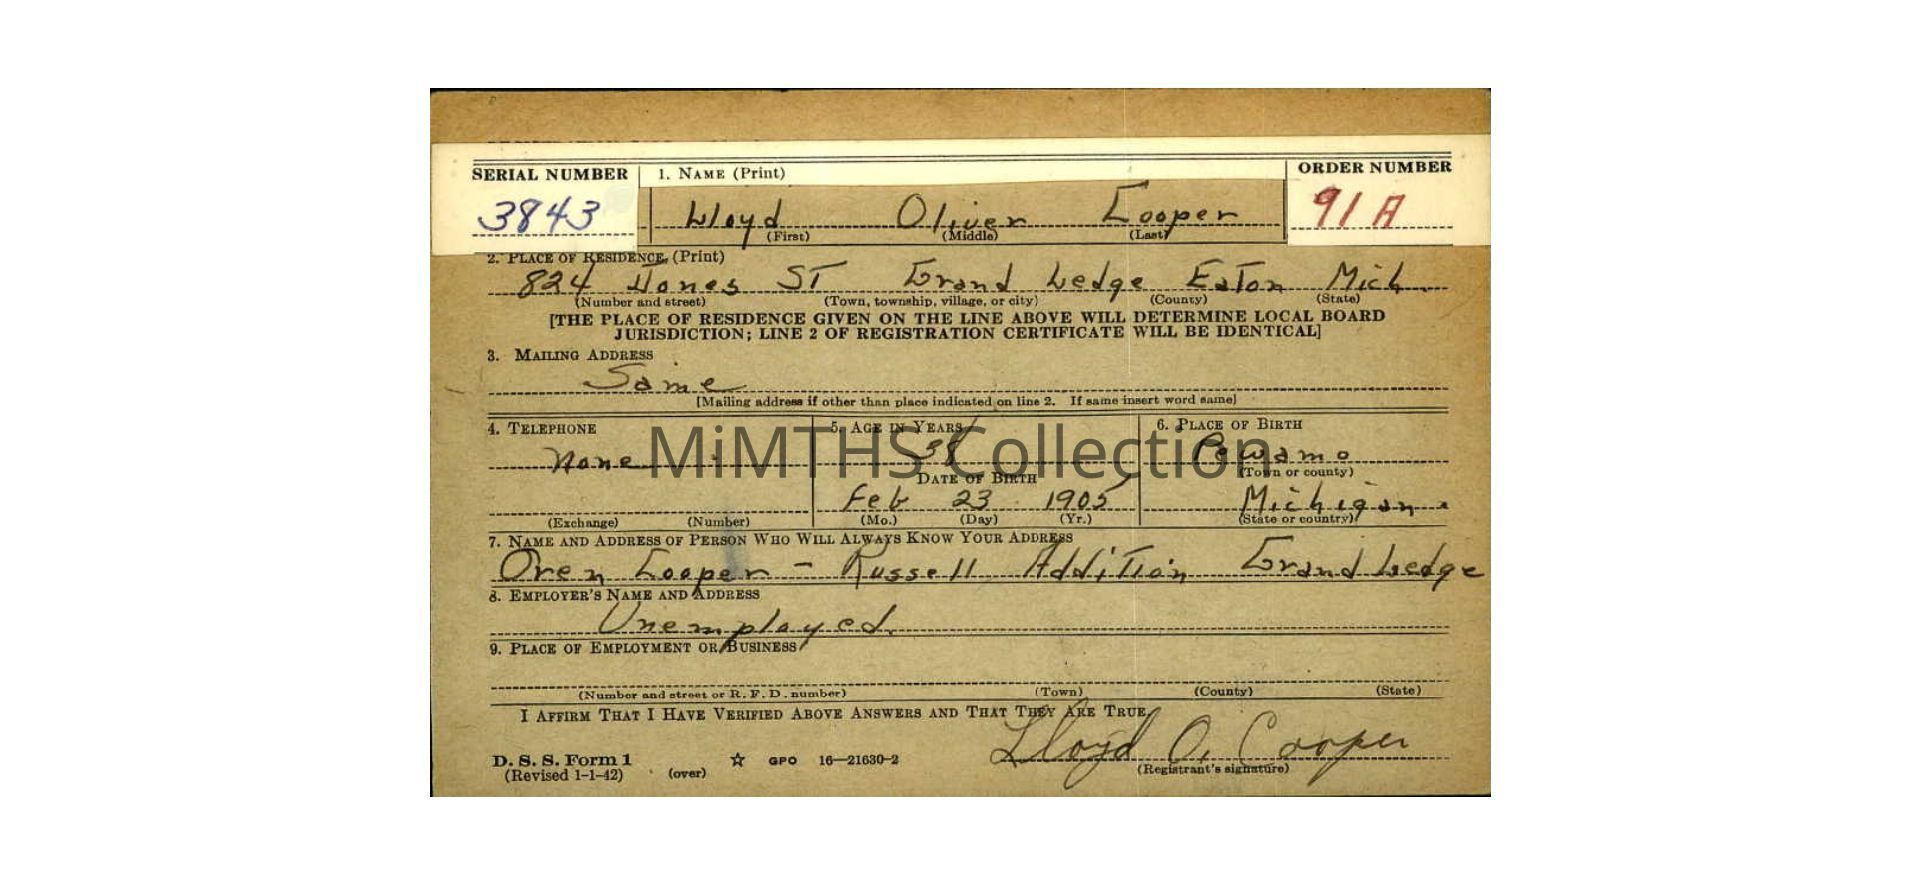 SERIAL NUMBER 1. NAME (Print) ORDER NUMBER
3843 Lloyd Oliver Cooper 91 A
(First) (Middle) (Last)
2. PLACE OF RESIDENCE (Print)
824 Jones ST Grand Ledge Eaton Mich.
(Number and street) (Town, township, village, or city) (County) (State)
[THE PLACE OF RESIDENCE GIVEN ON THE LINE ABOVE WILL DETERMINE LOCAL BOARD
JURISDICTION; LINE 2 OF REGISTRATION CERTIFICATE WILL BE IDENTICAL]
3. MAILING ADDRESS
Same
[Mailing address if other than place indicated on line 2. If same insert word same]
4. TELEPHONE 5. AGE IN YEARS 6. PLACE OF BIRTH
None 38 Pewamo
MiMTHS Collection
(Town or county)
DATE OF BIRTH
Feb 23 1905 Michigan
(Exchange) (Number) (Mo.) (Day) (Yr.) (State or country)
7. NAME AND ADDRESS OF PERSON WHO WILL ALWAYS KNOW YOUR ADDRESS
Oren Cooper - Russell Addition Grand Ledge
8. EMPLOYER'S NAME AND ADDRESS
Unemployed.
9. PLACE OF EMPLOYMENT OR BUSINESS
(Number and street or R. F. D. number) (Town) (County) (State)
I AFFIRM THAT I HAVE VERIFIED ABOVE ANSWERS AND THAT THEY ARE TRUE.
Lloyd O. Cooper
D. S. S. Form 1 ☆ GPO 16—21630-2
(Revised 1-1-42) (over) (Registrant's signature)